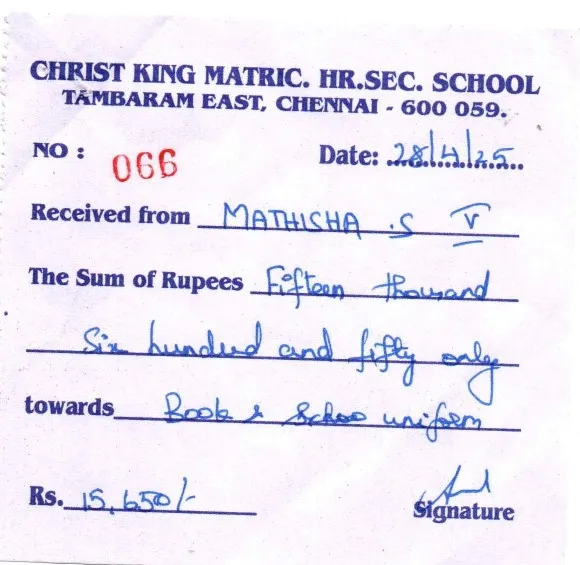 CHRIST KING MATRIC. HR.SEC. SCHOOL
TAMBARAM EAST, CHENNAI - 600 059.
NO : 066 Date: 28/4/25
Received from MATHISHA .S V
The Sum of Rupees Fifteen thousand
Six hundred and fifty only
towards Book & School uniform
Rs. 15,650/-
Signature